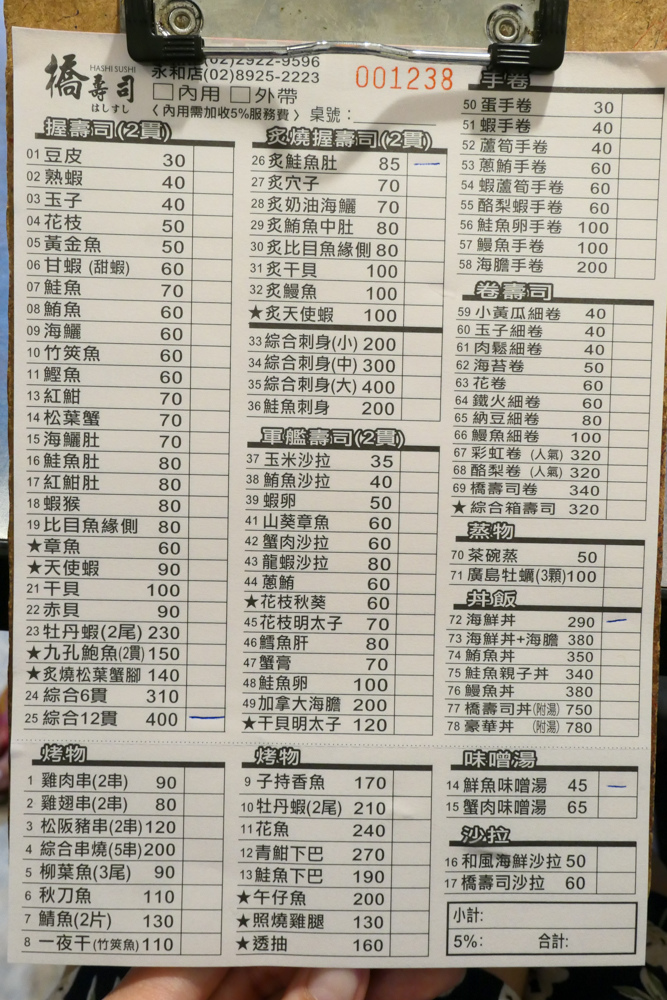 橋壽司
HASHI SUSHI
はしすし
(02)2922-9596
永和店(02)8925-2223
001238
□內用 □外帶
〈內用需加收5%服務費〉桌號:
握壽司(2貫)
01 豆皮 30
02 熟蝦 40
03 玉子 40
04 花枝 50
05 黃金魚 50
06 甘蝦 (甜蝦) 60
07 鮭魚 70
08 鮪魚 60
09 海鱺 60
10 竹筴魚 60
11 鰹魚 60
13 紅魽 70
14 松葉蟹 70
15 海鱺肚 70
16 鮭魚肚 80
17 紅魽肚 80
18 蝦猴 80
19 比目魚緣側 80
★章魚 60
★天使蝦 90
21 干貝 100
22 赤貝 90
23 牡丹蝦(2尾) 230
★九孔鮑魚(2貫) 150
★炙燒松葉蟹腳 140
24 綜合6貫 310
25 綜合12貫 400
炙燒握壽司(2貫)
26 炙鮭魚肚 85
27 炙穴子 70
28 炙奶油海鱺 70
29 炙鮪魚中肚 80
30 炙比目魚緣側 80
31 炙干貝 100
32 炙鰻魚 100
★炙天使蝦 100
33 綜合刺身(小) 200
34 綜合刺身(中) 300
35 綜合刺身(大) 400
36 鮭魚刺身 200
軍艦壽司(2貫)
37 玉米沙拉 35
38 鮪魚沙拉 40
39 蝦卵 50
41 山葵章魚 60
42 蟹肉沙拉 60
43 龍蝦沙拉 80
44 蔥鮪 60
★花枝秋葵 60
45 花枝明太子 70
46 鱈魚肝 80
47 蟹膏 70
48 鮭魚卵 100
49 加拿大海膽 200
★干貝明太子 120
手卷
50 蛋手卷 30
51 蝦手卷 40
52 蘆筍手卷 40
53 蔥鮪手卷 60
54 蝦蘆筍手卷 60
55 酪梨蝦手卷 60
56 鮭魚卵手卷 100
57 鰻魚手卷 100
58 海膽手卷 200
卷壽司
59 小黃瓜細卷 40
60 玉子細卷 40
61 肉鬆細卷 40
62 海苔卷 50
63 花卷 60
64 鐵火細卷 60
65 納豆細卷 80
66 鰻魚細卷 100
67 彩虹卷 (人氣) 320
68 酪梨卷 (人氣) 320
69 橋壽司卷 340
★綜合箱壽司 320
蒸物
70 茶碗蒸 50
71 廣島牡蠣(3顆) 100
丼飯
72 海鮮丼 290
73 海鮮丼+海膽 380
74 鮪魚丼 350
75 鮭魚親子丼 340
76 鰻魚丼 380
77 橋壽司丼(附湯) 750
78 豪華丼 (附湯) 780
烤物
1 雞肉串(2串) 90
2 雞翅串(2串) 80
3 松阪豬串(2串) 120
4 綜合串燒(5串) 200
5 柳葉魚(3尾) 90
6 秋刀魚 110
7 鯖魚(2片) 130
8 一夜干(竹筴魚) 110
烤物
9 子持香魚 170
10 牡丹蝦(2尾) 210
11 花魚 240
12 青魽下巴 270
13 鮭魚下巴 190
★午仔魚 200
★照燒雞腿 130
★透抽 160
味噌湯
14 鮮魚味噌湯 45
15 蟹肉味噌湯 65
沙拉
16 和風海鮮沙拉 50
17 橋壽司沙拉 60
小計:
5%: 合計: